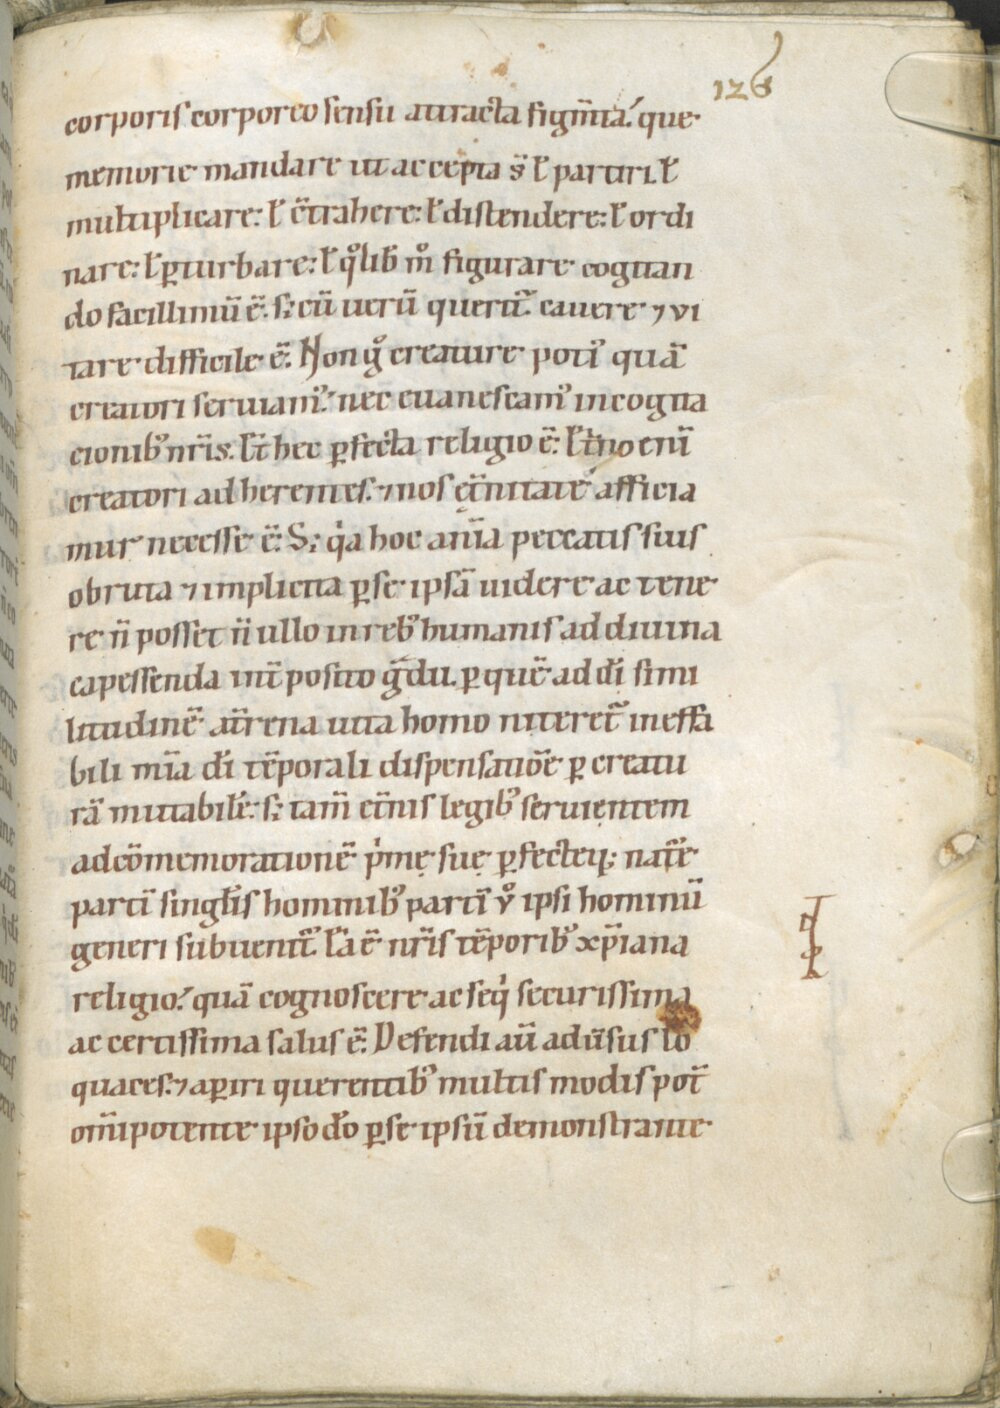 126
corporis corporeo sensu attracta figm̅ta. que
memorie mandare ut accepta s̅ ł partiri. ł
multiplicare: ł c̅trahere: ł distendere: ł ordi
nare: ł ꝑturbare: ł qͦlib; mͦ figurare cogitan
do facillimu̅ e̅. s; cu̅ ueru̅ querit᷑. cauere ⁊ vi
tare difficile e̅. Non gͦ creature potiꝰ qua̅
creatori seruiamꝰ. nec euanescamꝰ in cogita
cionibꝰ nr̅is. hec ꝑfecta religio e̅. eni̅
creatori adherentes. ⁊ nos et̅nitate afficia
mur necesse e̅. S; qͥa hoc ani̅a peccatis suis
obruta ⁊ implicita ꝑ se ipsa̅ uidere ac tene
re n̅ posset n̅ ullo in rebꝰ humanis ad diuina
capessenda int̅posito gͣdu. ꝑ que̅ ad di̅ simi
litudine̅ at̅rena uita homo niteret᷑ ineffa
bili mi̅a di̅ te̅porali dispensatio̅e ꝑ creatu
ra̅ mutabile̅. s; tam̅ et̅nis legibꝰ seruientem
ad co̅memoratione̅ pͥmę suę ꝑfecteq; nat᷑e
parti̅ singłis hominibꝰ parti̅ vͦ ipsi hominu̅
generi subuenit᷑. Ea e̅ nr̅is te̅poribꝰ xp̅iana
religio. qua̅ cognoscere ac seqͥ securissima
ac certissima salus e̅. Defendi au̅ adu̅sus lo
quaces. ⁊ aꝑiri querentibꝰ multis modis pot̅
om̅ipotente ipso do̅ ꝑ se ipsu̅ demonstrante